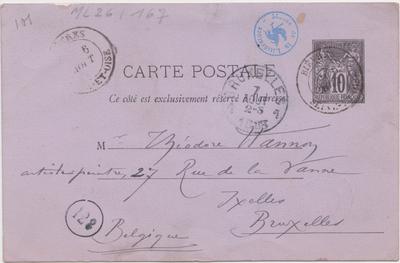 101
ML 26/167
6
AOUT
CARTE POSTALE
Ce côté est exclusivement réservé à l'adresse
BRUXELLES
7
AOUT
REPUBLIQUE FRANC
10
M Théodore Hannon
artiste peintre, 27 Rue de la Vanne
Ixelles
Bruxelles
Belgique
122